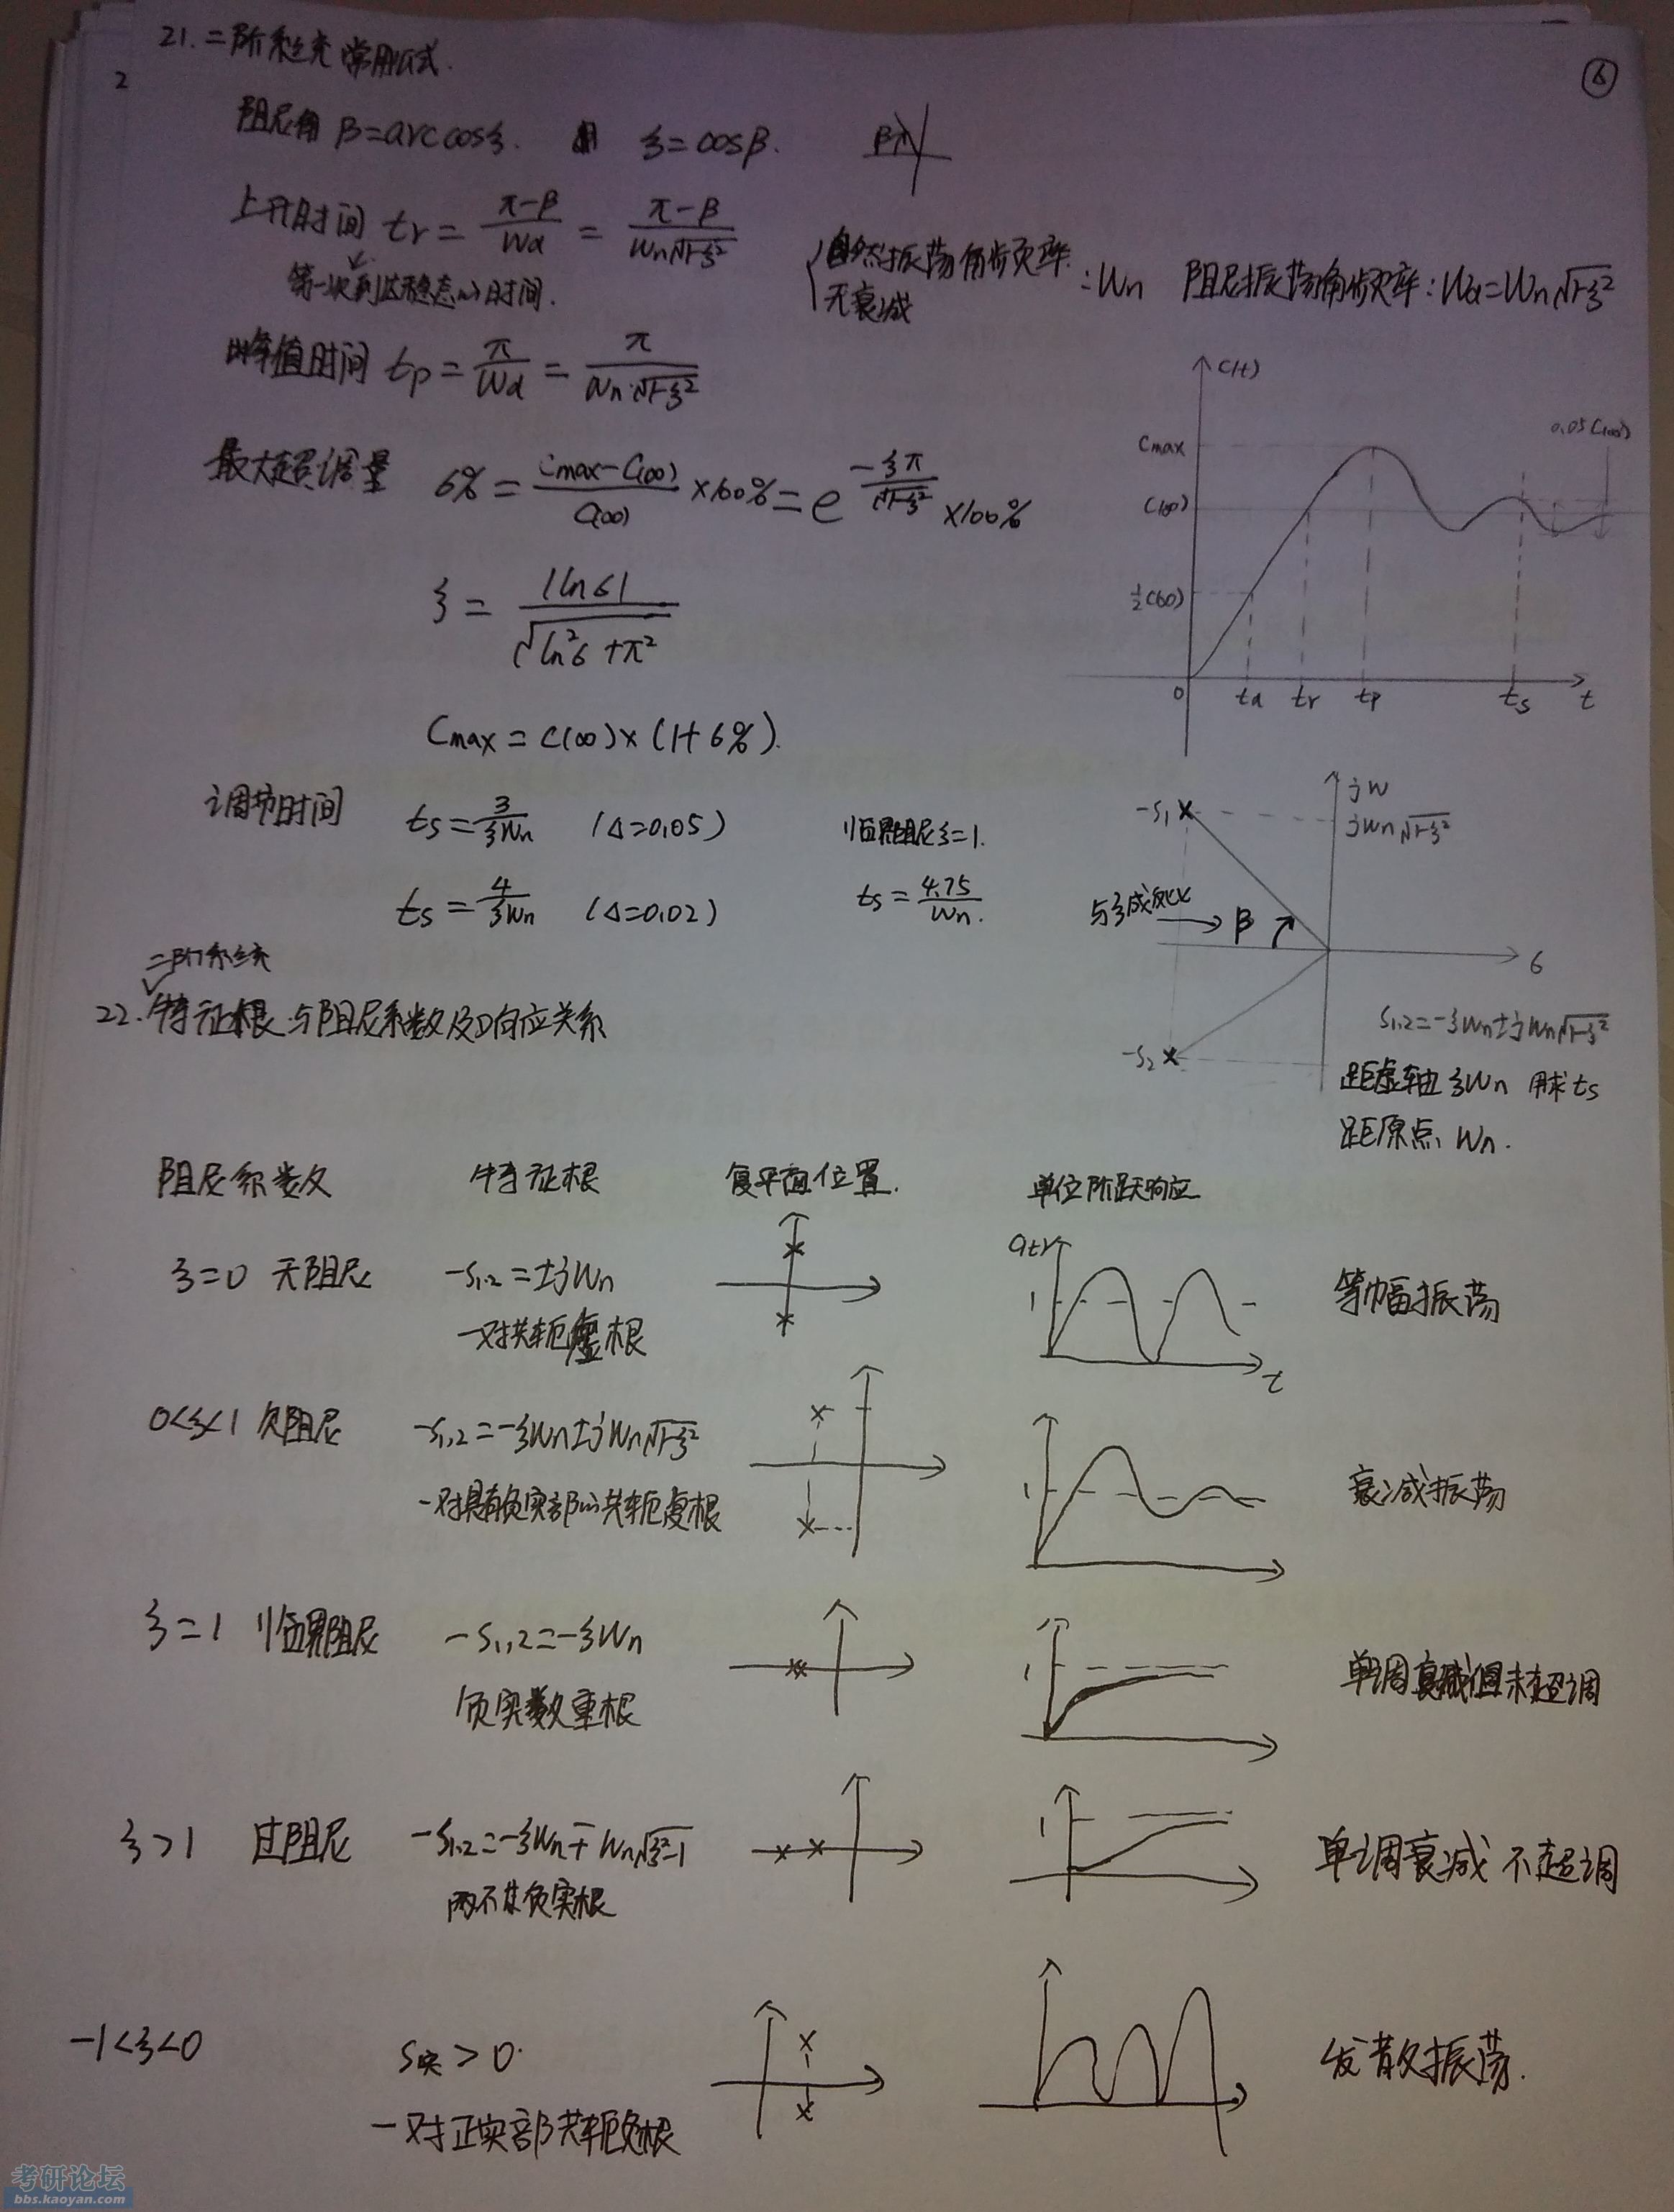 21. 二阶系统常用公式.
2
⑥
阻尼角 β=arccosξ. 即 ξ=cosβ. β
上升时间 tr = (π-β)/Wd = (π-β)/(Wn√(1-ξ²))
第一次到达稳态的时间.
自然振荡角频率
无衰减
: Wn 阻尼振荡角频率: Wd=Wn√(1-ξ²)
峰值时间 tp = π/Wd = π/(Wn·√(1-ξ²))
最大超调量 б% = (Cmax-C(∞))/C(∞) ×100% = e^(-ξπ/√(1-ξ²)) ×100%
ξ = |lnб|/√(ln²б+π²)
Cmax = C(∞)×(1+б%).
C(t)
Cmax
0.05C(∞)
C(∞)
½C(∞)
0 td tr tp ts t
调节时间 ts = 3/(ξWn) (Δ=0.05) 临界阻尼ξ=1.
ts = 4/(ξWn) (Δ=0.02) ts = 4.75/Wn.
-S₁ jw
jWn√(1-ξ²)
与ξ成反比 → β б
-S₂
S₁,₂=-ξWn±jWn√(1-ξ²)
距虚轴 ξWn 用求ts
距原点 Wn.
二阶系统
22. 特征根与阻尼系数及响应关系
阻尼系数 特征根 复平面位置. 单位阶跃响应
ξ=0 无阻尼 -S₁,₂=±jWn 1 t 等幅振荡
一对共轭虚根
0<ξ<1 欠阻尼 -S₁,₂=-ξWn±jWn√(1-ξ²) 1 衰减振荡
一对具有负实部的共轭复根
ξ=1 临界阻尼 -S₁,₂=-ξWn 1 单调衰减但未超调
负实数重根
ξ>1 过阻尼 -S₁,₂=-ξWn∓Wn√(ξ²-1) 1 单调衰减 不超调
两不等负实根
-1<ξ<0 S实>0. 发散振荡.
一对正实部共轭负根
考研论坛
bbs.kaoyan.com